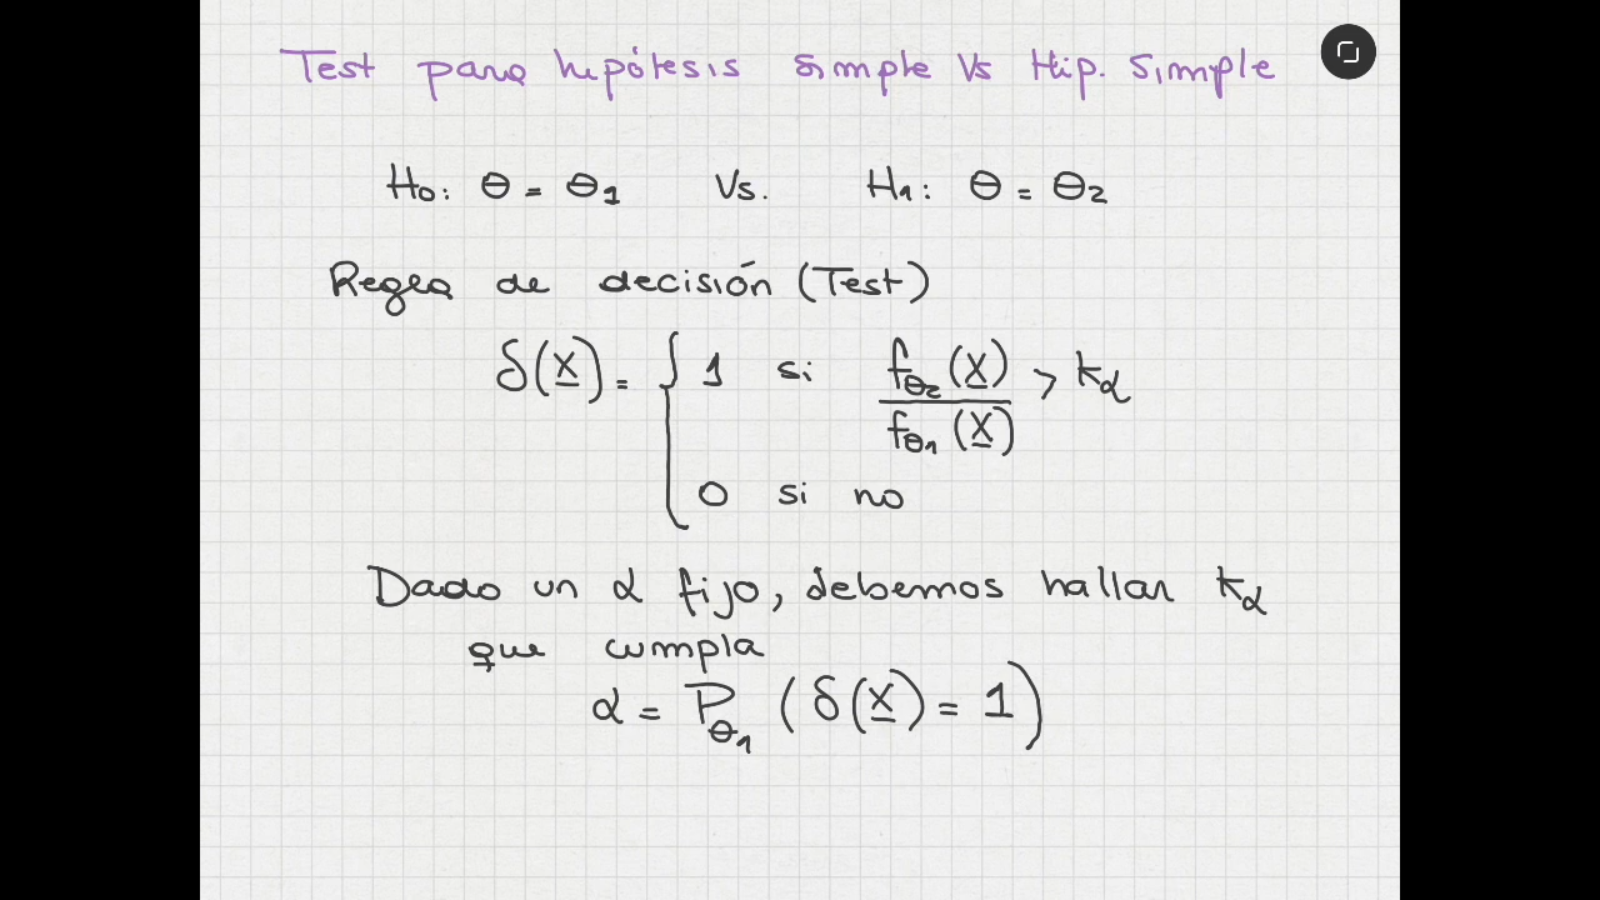 Test para hipótesis simple Vs Hip. Simple
H₀: θ = θ₁ Vs. H₁: θ = θ₂
Regla de decisión (Test)
δ(X) = { 1 si f_θ₂(X) / f_θ₁(X) > k_α
0 si no
Dado un α fijo, debemos hallar k_α
que cumpla
α = P_θ₁ (δ(X) = 1)